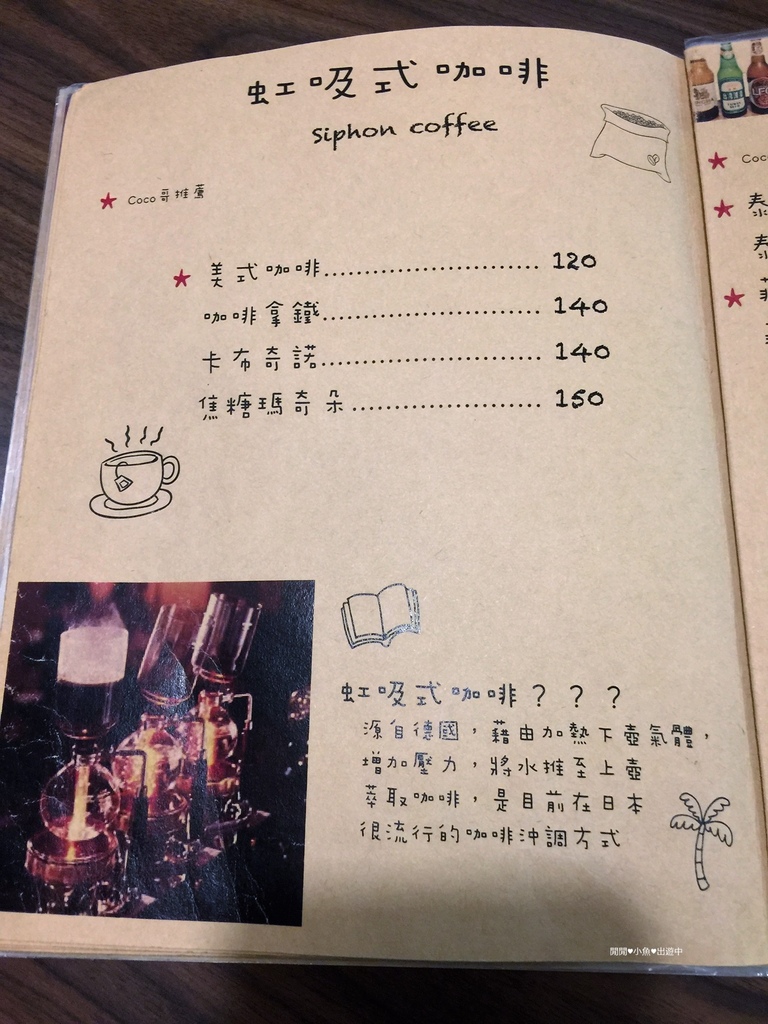 虹吸式咖啡
siphon coffee
Coco哥推薦
美式咖啡........................ 120
咖啡拿鐵........................ 140
卡布奇諾........................ 140
焦糖瑪奇朵..................... 150
虹吸式咖啡???
源自德國,藉由加熱下壺氣體,
增加壓力,將水推至上壺
萃取咖啡,是目前在日本
很流行的咖啡沖調方式
閒閒♥小魚♥出遊中